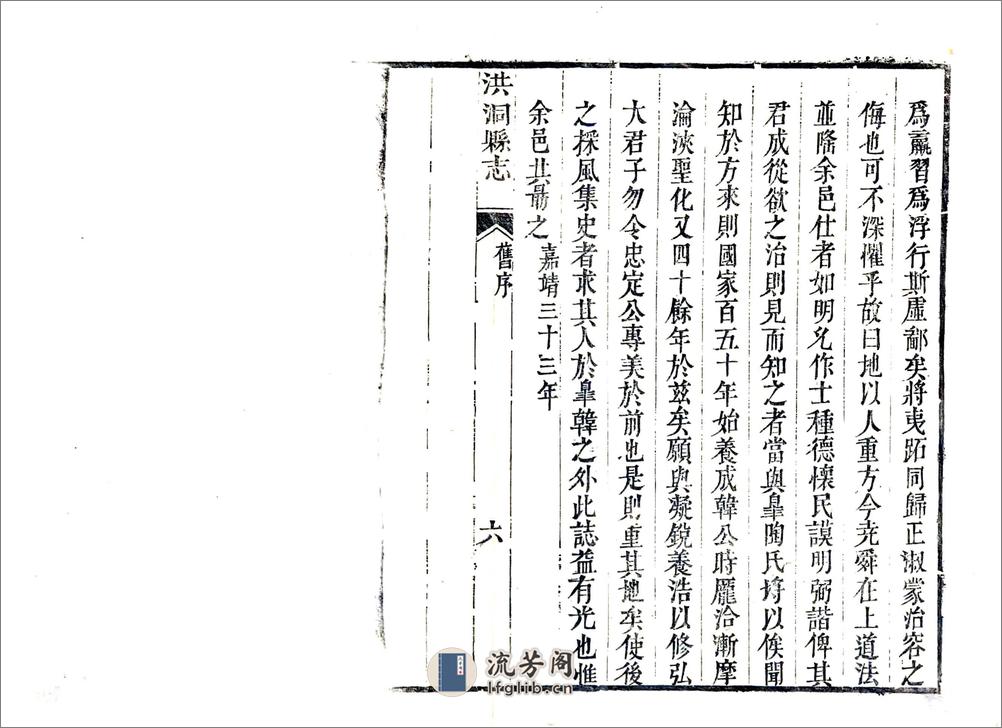 爲羸習爲浮行斯虛鄙矣將夷跖同歸正淑蒙治容之
侮也可不深懼乎故曰地以人重方今尭舜在上道法
並隆余邑仕者如明允作士種德懷民謨明弼諧俾其
君成從欲之治則見而知之者當與臯陶氏埒以俟聞
知於方來則國家百五十年始養成韓公時龎洽漸摩
淪浹聖化又四十餘年於茲矣願與凝鏡養浩以修弘
大君子勿令忠定公專美於前也是則重其地矣使後
之採風集史者求其人於臯韓之外此誌益有光也惟
余邑其勗之 嘉靖三十三年
洪洞縣志 舊序 六
流芳阁
lfglib.cn